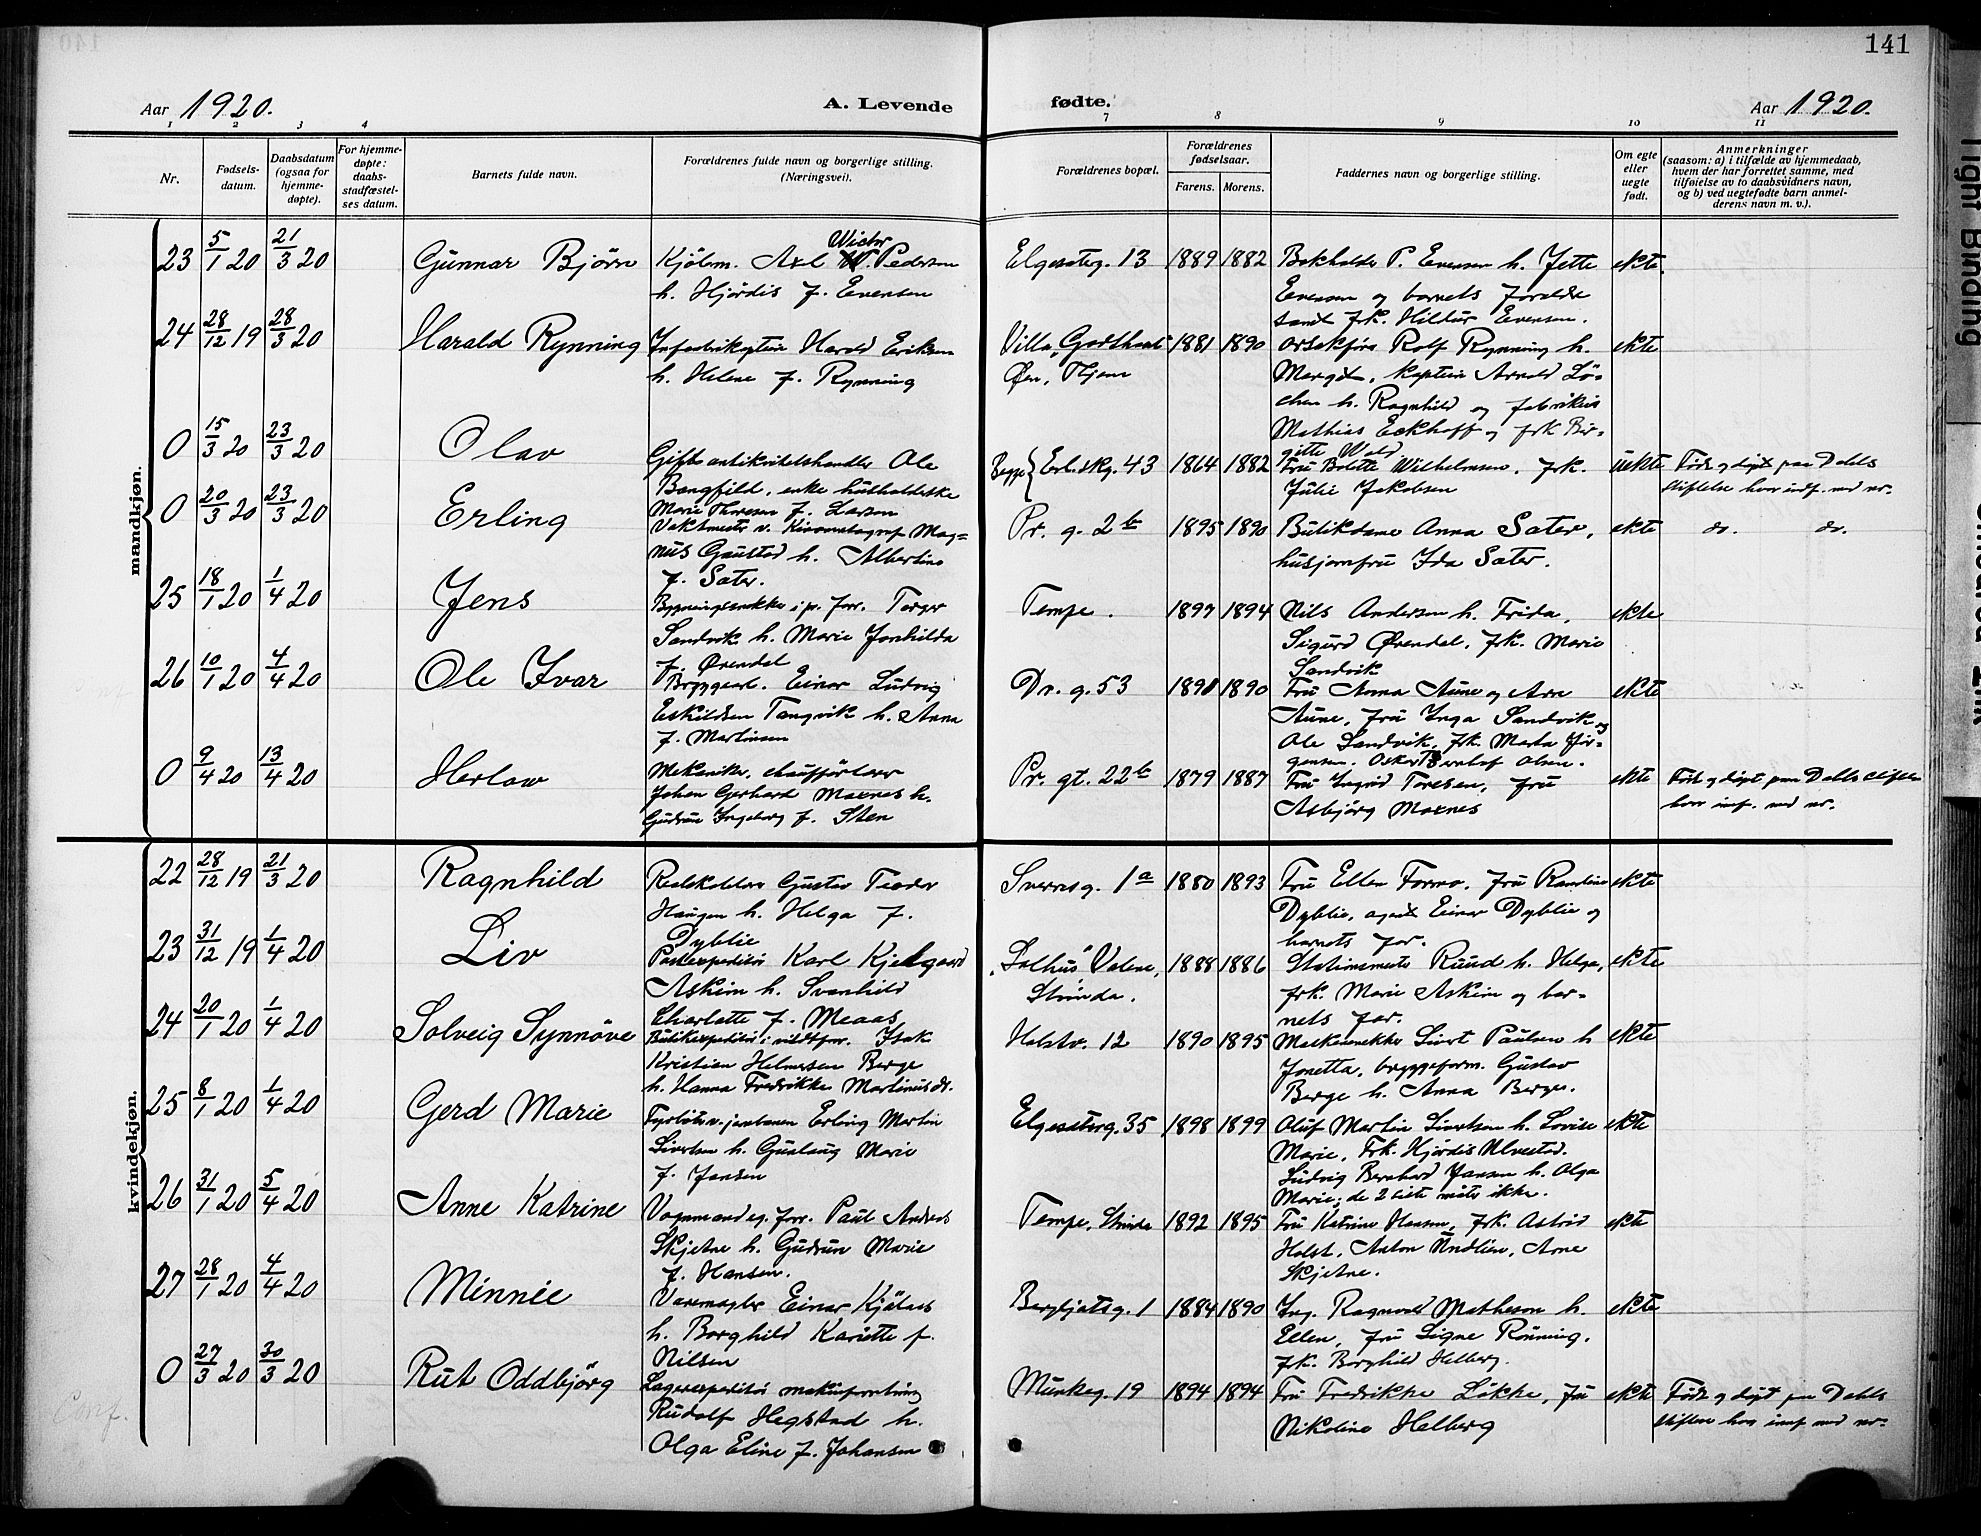 141
Aar 1920. A. Levende fødte. Aar 1920.
1 2 3 4 7 8 9 10 11
Nr.
Fødsels-
datum.
Daabsdatum
(ogsaa for
hjemme-
døpte).
For hjemme-
døpte:
daabs-
stadfæstel-
ses datum.
Barnets fulde navn.
Forældrenes fulde navn og borgerlige stilling.
(Næringsvei).
Forældrenes bopæl.
Forældrenes
fødselsaar.
Farens. Morens.
Faddernes navn og borgerlige stilling.
Om egte
eller
uegte
født.
Anmerkninger
(saasom: a) i tilfælde av hjemmedaab,
hvem der har forrettet samme, med
tilføielse av to daabsvidners navn,
og b) ved uegtefødte barn anmel-
derens navn m. v.).
mandkjøn.
23 5/1 20 21/3 20 Gunnar Bjørn Kjølem. Axl Victor Pedersen Elgesæterg. 13 1889 1882 Bokholder P. Evensen h. Jette ekte.
h. Hjørdis f. Evensen Evensen og barnets foreldre
samt frk. Hildur Evensen.
24 28/12 19 28/3 20 Harald Rynning Harald Eriksen Villa Godthaab 1881 1890 Rolf Rynning h. ekte
h. Helene f. Rynning Øen, Thjem Margit, kaptein Arnold Lö-
chen h. Ragnhild og fabrikeier
Mathias Eckhoff og frk Bir-
gitte Wold
0 15/3 20 23/3 20 Olav Gift antikvitetshandler Ole Begge Erl. Skg. 43 1864 1882 Fru Bolette Wilhelmsen, frk. uekte Født og døpt paa Dahls
Bangfild, enke husholderske Julie Jakobsen stiftelse hvor indf. med nr.
Marie Thoresen f. Larsen
0 20/3 20 23/3 20 Erling Vaktmester v. Kinomatograf Mag- Pr. g. 2b 1895 1890 Butikdame Anna Sater, ekte do. do.
nus Gaustad h. Albertine husjomfru Ida Sater.
f. Sater.
25 18/1 20 1/4 20 Jens Bygningssnekker i pr. forr. Torger Tempe. 1897 1894 Nils Andersen h. Frida, ekte
Sandvik h. Marie Jorhilda Sigurd Ørendal, frk. Marie
f. Ørendal Sandvik
26 10/1 20 4/4 20 Ole Ivar Bryggearb. Einar Ludvig Dr. g. 53 1891 1890 Fru Anna Aune og Arne ekte
Eskildsen Tangvik h. Anna Aune, fru Inga Sandvik og
f. Martinsen Ole Sandvik, frk. Marta Jör-
gensen. Oskar Bernhof Olsen.
0 9/4 20 13/4 20 Herlow Mekaniker, chaufførlærer Pr. gt. 22b 1879 1887 Fru Ingrid Toresen, fru ekte Født og døpt paa Dahls stiftelse
Johan Gerhard Moxnes h. Asbjørg Moxnes hvor innf. med nr.
Gudrun Ingeborg f. Sten
kvindekjøn.
22 28/12 19 21/3 20 Ragnhild Gustav Teodor Sverresg. 1a 1880 1893 Fru Ellen Formo, fru Randine ekte
Haugen h. Helga f. Dyblie, agent Einar Dyblie og
Dyblie barnets far.
23 31/12 19 1/4 20 Liv Postexpeditör Karl Kjelgaard "Solhus" Valene, 1888 1886 Stationsmester Ruud h. Helga, ekte
Askim h. Svanhild Strinda. frk. Marie Askim og bar-
Charlotte f. Meaas nets far.
24 20/1 20 1/4 20 Solveig Synnöve Butikexpeditör i vildtforr. Isak Holstv. 12 1890 1895 Maskinsnekker Sivert Paulsen h ekte
Kristian Helmersen Berge Jonetta, bryggeform. Gustav
h. Hanna Fredrikke Martinusdr. Berge h. Anna Berge.
25 8/1 20 1/4 20 Gerd Marie Fyrböter v. jernbanen Erling Martin Elgesæterg. 35 1898 1899 Oluf Martin Sivertsen h. Lovise ekte
Sivertsen h. Gunlaug Marie Marie, Frk. Hjördis Ulvestad.
f. Jansen Ludvig Bernhard Jansen h. Olga
Marie; de 2 siste møter ikke.
26 31/1 20 5/4 20 Anne Katrine Vognmand eg. forr. Paul Andreas Tempe, Strinda 1892 1895 Fru Katrine Hansen, frk. Astrid ekte
Skjetne h. Gudrun Marie Holst, Anton Undlien, Arne
f. Hansen. Skjetne.
27 28/1 20 4/4 20 Minnie Varemægler Einar Kjölaas Bergljotsg. 1 1884 1890 Ing. Ragnvald Matheson h. ekte
h. Borghild Kariette f. Ellen, fru Signe Rönning,
Nilsen frk. Borghild Helberg.
0 27/3 20 30/3 20 Rut Oddbjörg Lagerexpeditör maskinforretning Munkeg. 19 1894 1894 Fru Fredrikke Lökke, fru ekte Født og døpt paa Dahls
Rudolf Hegstad h. Nikoline Helberg stiftelse hvor innf. med nr.
Olga Eline f. Johansen
Tight Binding